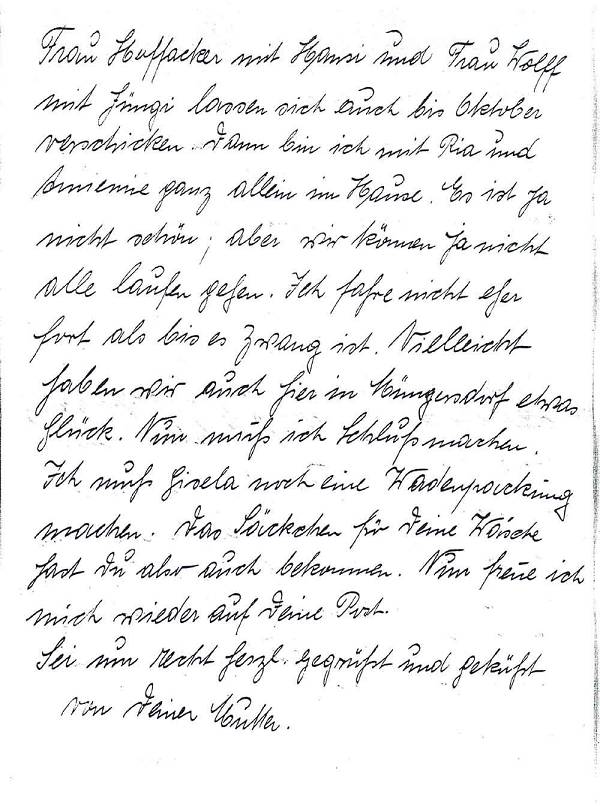 Frau Huffacker mit Hansi und Frau Wolff
mit Jüngi lassen sich auch bis Oktober
verschicken. Dann bin ich mit Ria und
Annemie ganz allein im Hause. Es ist ja
nicht schön, aber wir können ja nicht
alle laufen gehen. Ich fahre nicht eher
fort als bis es Zwang ist. Vielleicht
haben wir auch hier in Müngersdorf etwas
Glück. Nun muß ich Schluß machen.
Ich muß Gisela noch eine Wadenpackung
machen. Das Säckchen für Deine Wäsche
hast Du also auch bekommen. Nun freue ich
mich wieder auf Deine Post.
Sei nun recht herzl. gegrüßt und geküßt
von Deiner Mutter.